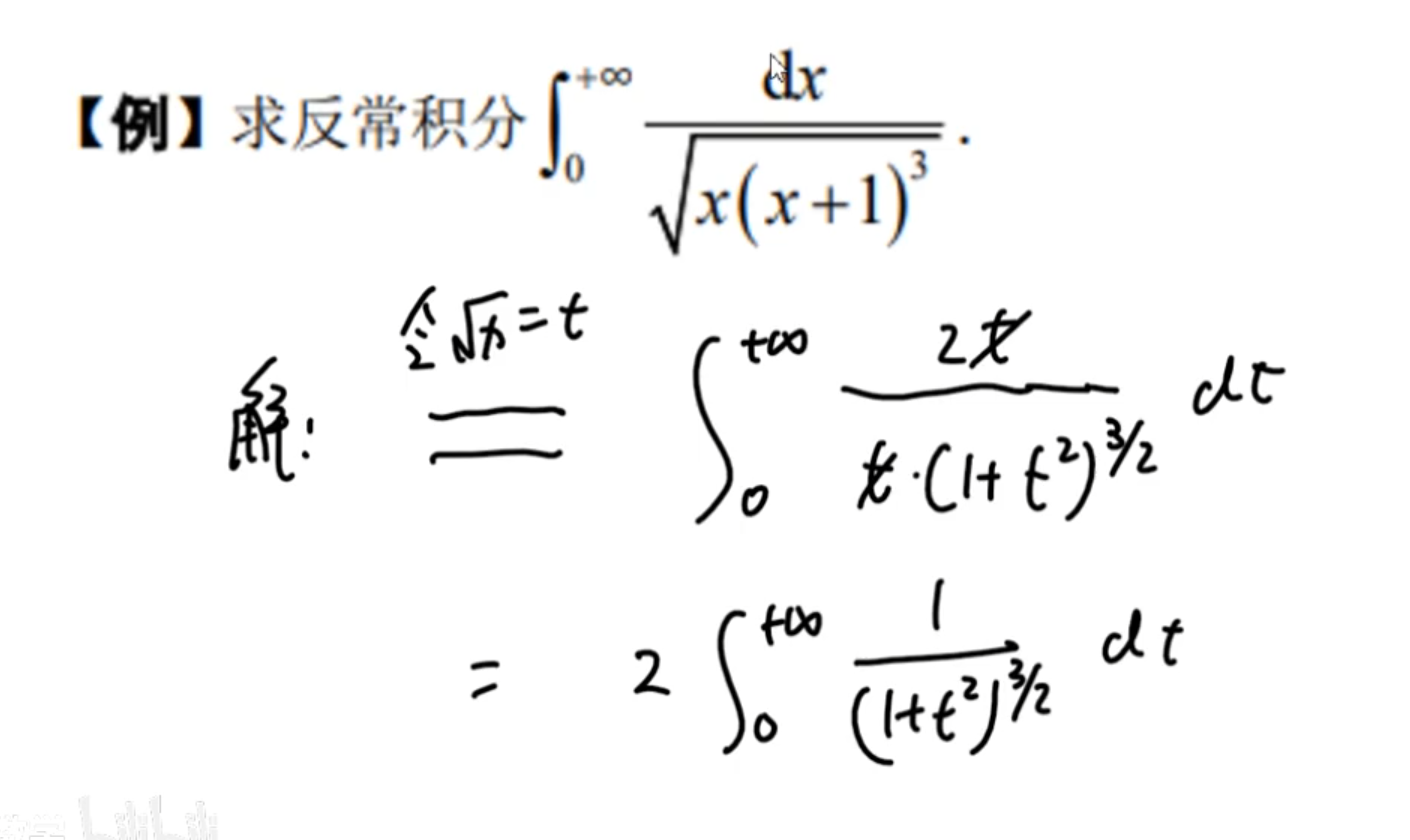 【例】求反常积分 ∫₀^{+∞} dx / √(x(x+1)³) .
解: 令√x = t ═ ∫₀^{+∞} 2t / (t·(1+t²)^{3/2}) dt
= 2 ∫₀^{+∞} 1 / (1+t²)^{3/2} dt